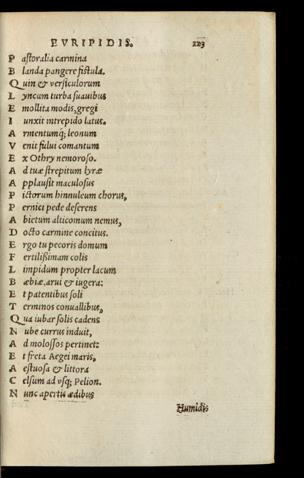 EVRIPIDIS. 223
P astoralia carmina
B landa pangere fistula.
Q uin & versiculorum
L yncum turba suauibus
E mollita modis, gregi
I unxit intrepido latus.
A rmentumq; leonum
V enit fului comantum
E x Othry nemoroso.
A d tuæ strepitum lyræ
A pplausit maculosus
P ictorum hinnuleum chorus,
P ernici pede deserens
A bietum alticomum nemus,
D octo carmine concitus.
E rgo tu pecoris domum
F ertilißimam colis
L impidum propter lacum
B œbiæ, arui & iugera:
E t patentibus soli
T erminos conuallibus,
Q ua iubar solis cadens
N ube currus induit,
A d molossos pertinet:
E t freta Aegei maris,
A estuosa & littora
C elsum ad usq; Pelion.
N unc apertis ædibus
Humidis